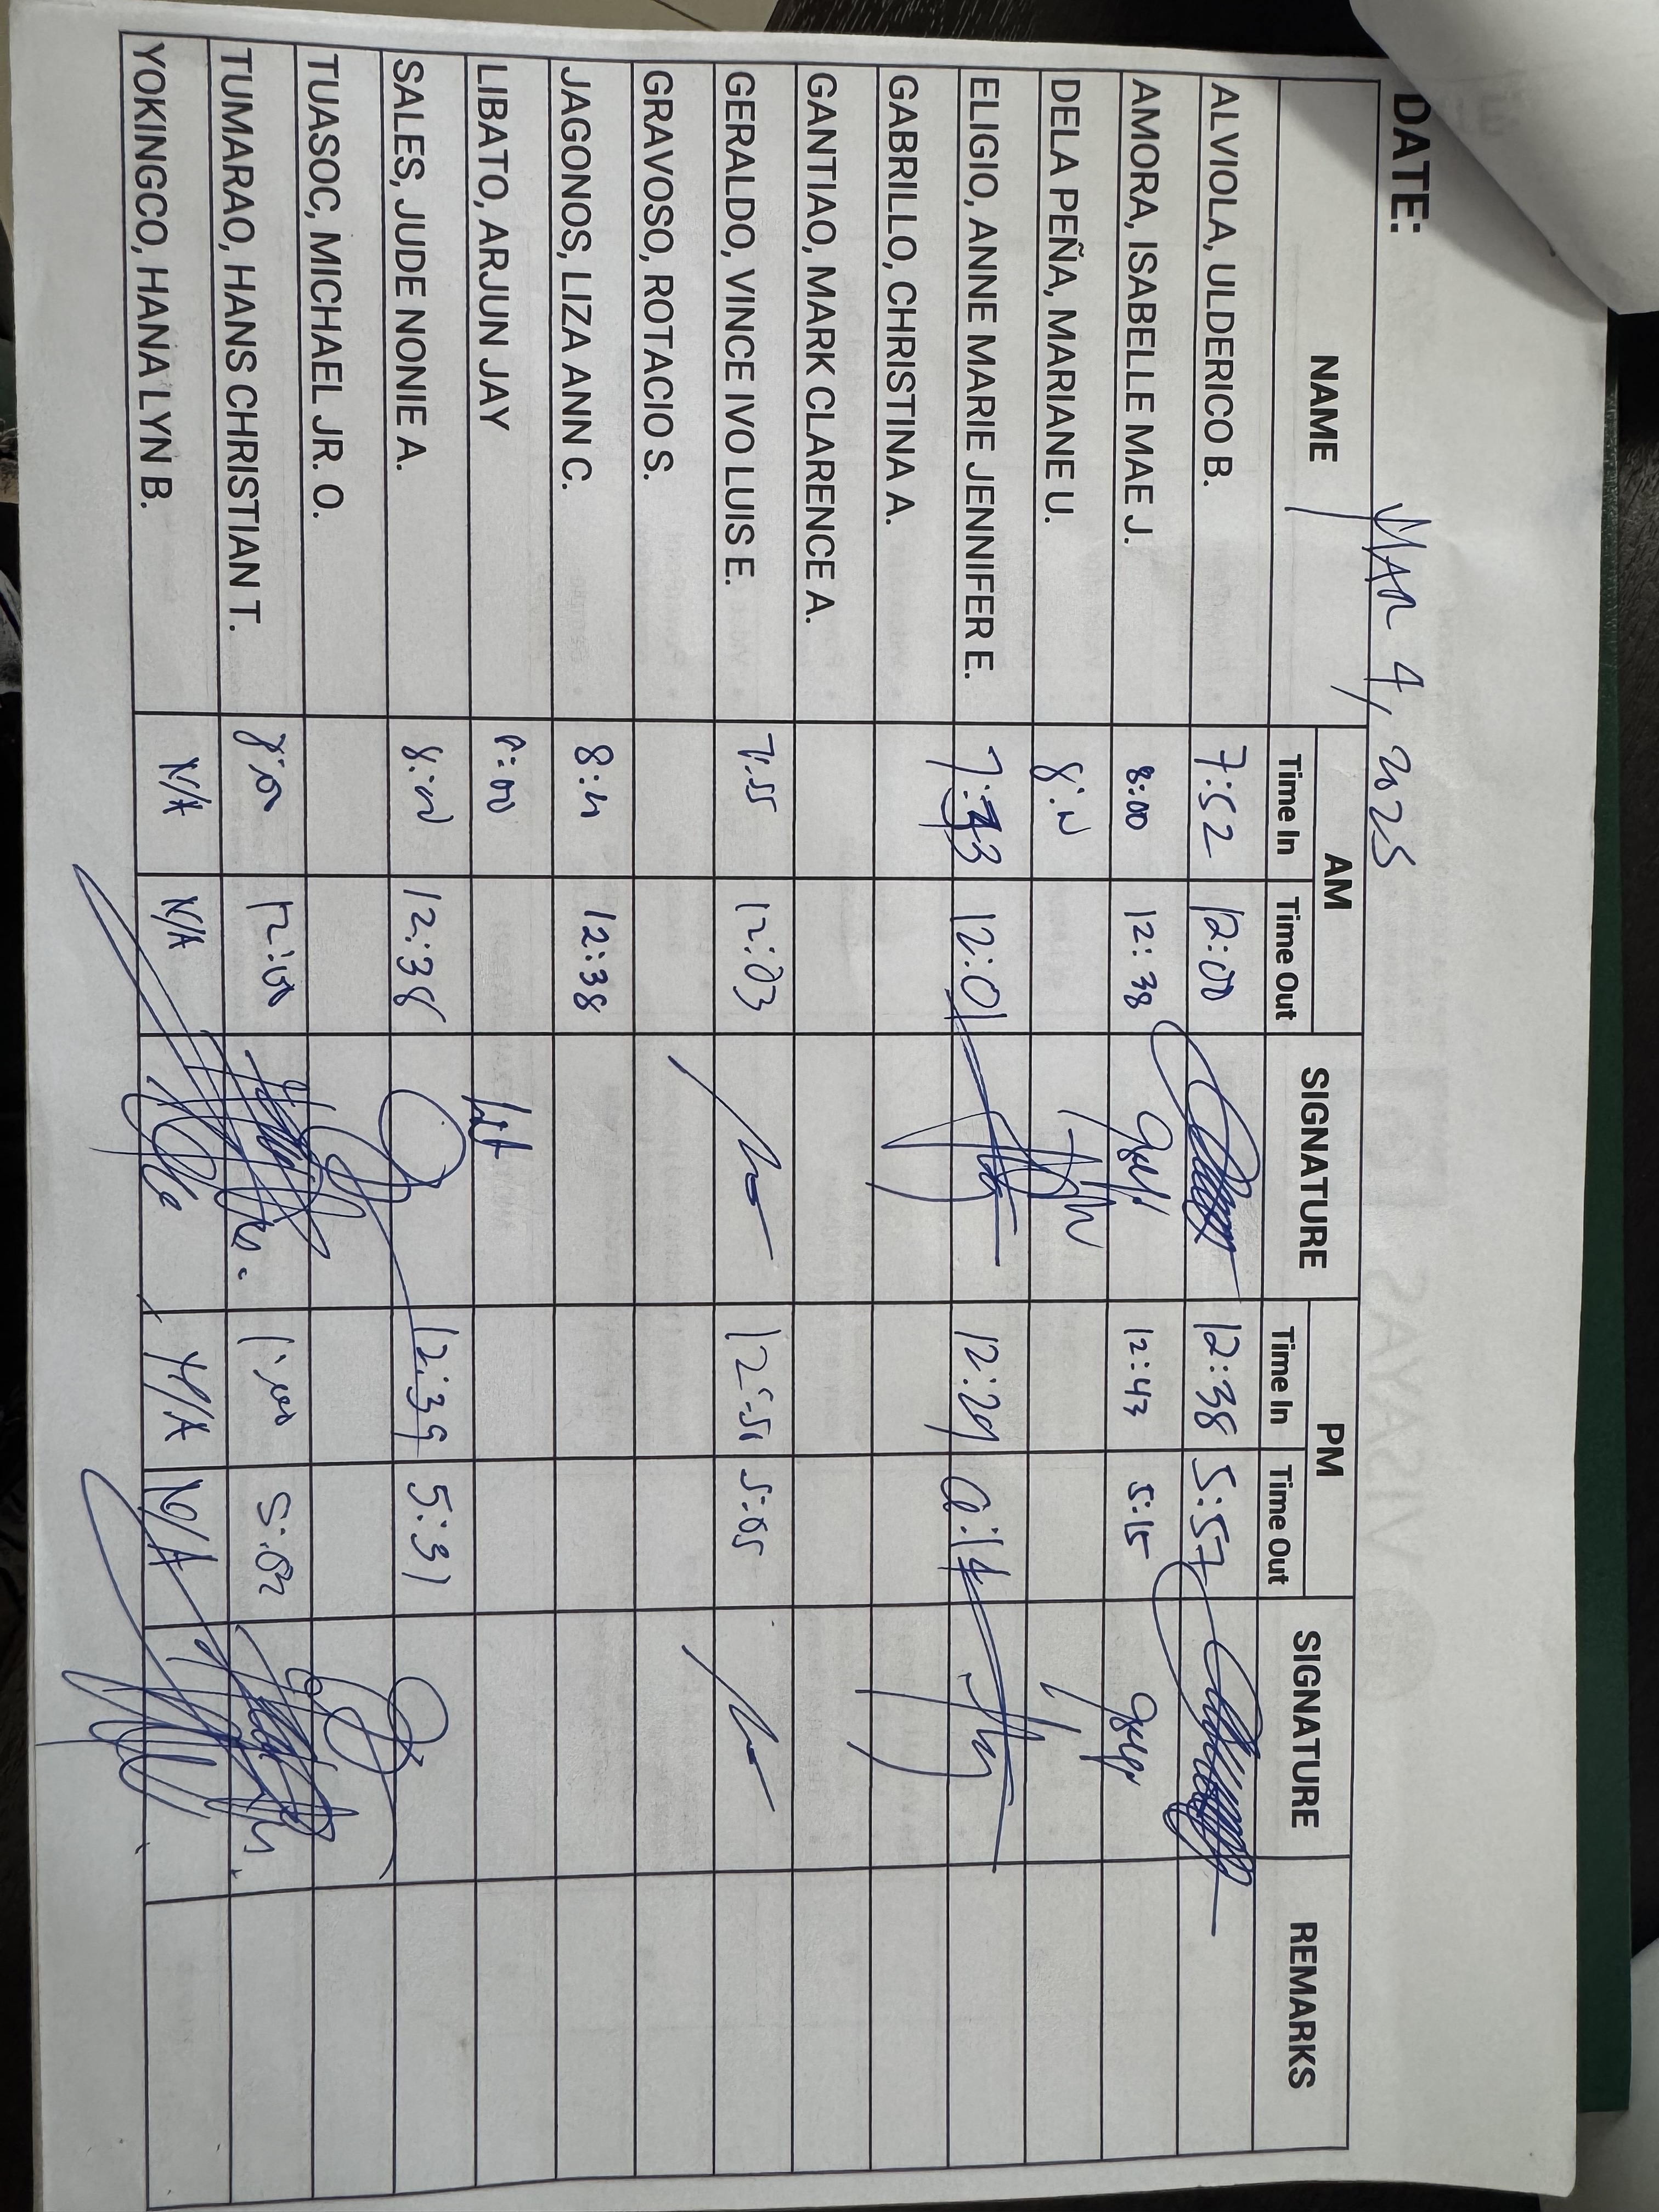 DATE: MAR 4, 2025
NAME AM SIGNATURE PM SIGNATURE REMARKS
Time In Time Out Time In Time Out
ALVIOLA, ULDERICO B. 7:52 12:00 12:38 5:57
AMORA, ISABELLE MAE J. 8:00 12:38 12:43 5:15
DELA PEÑA, MARIANE U.
ELIGIO, ANNE MARIE JENNIFER E. 12:01 12:29
GABRILLO, CHRISTINA A.
GANTIAO, MARK CLARENCE A.
GERALDO, VINCE IVO LUIS E. 7:55 12:03 12:51 5:05
GRAVOSO, ROTACIO S.
JAGONOS, LIZA ANN C. 12:38
LIBATO, ARJUN JAY
SALES, JUDE NONIE A. 8:00 12:38 12:39 5:31
TUASOC, MICHAEL JR. O.
TUMARAO, HANS CHRISTIAN T. 8:00 12:00 1:00 5:02
YOKINGCO, HANA LYN B. N/A N/A N/A N/A